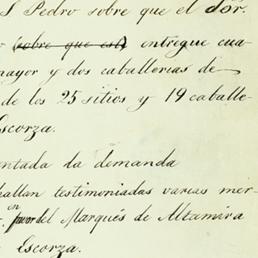 S. Pedro sobre que el Dor.
o (sobre que est) entregue cua
mayor y dos caballerias de
de los 25 sitios y 19 caballe
Escorza.
entada la demanda
hallan testimoniadas varias mer
r. en favor del Marqués de Altamira
Escorza.